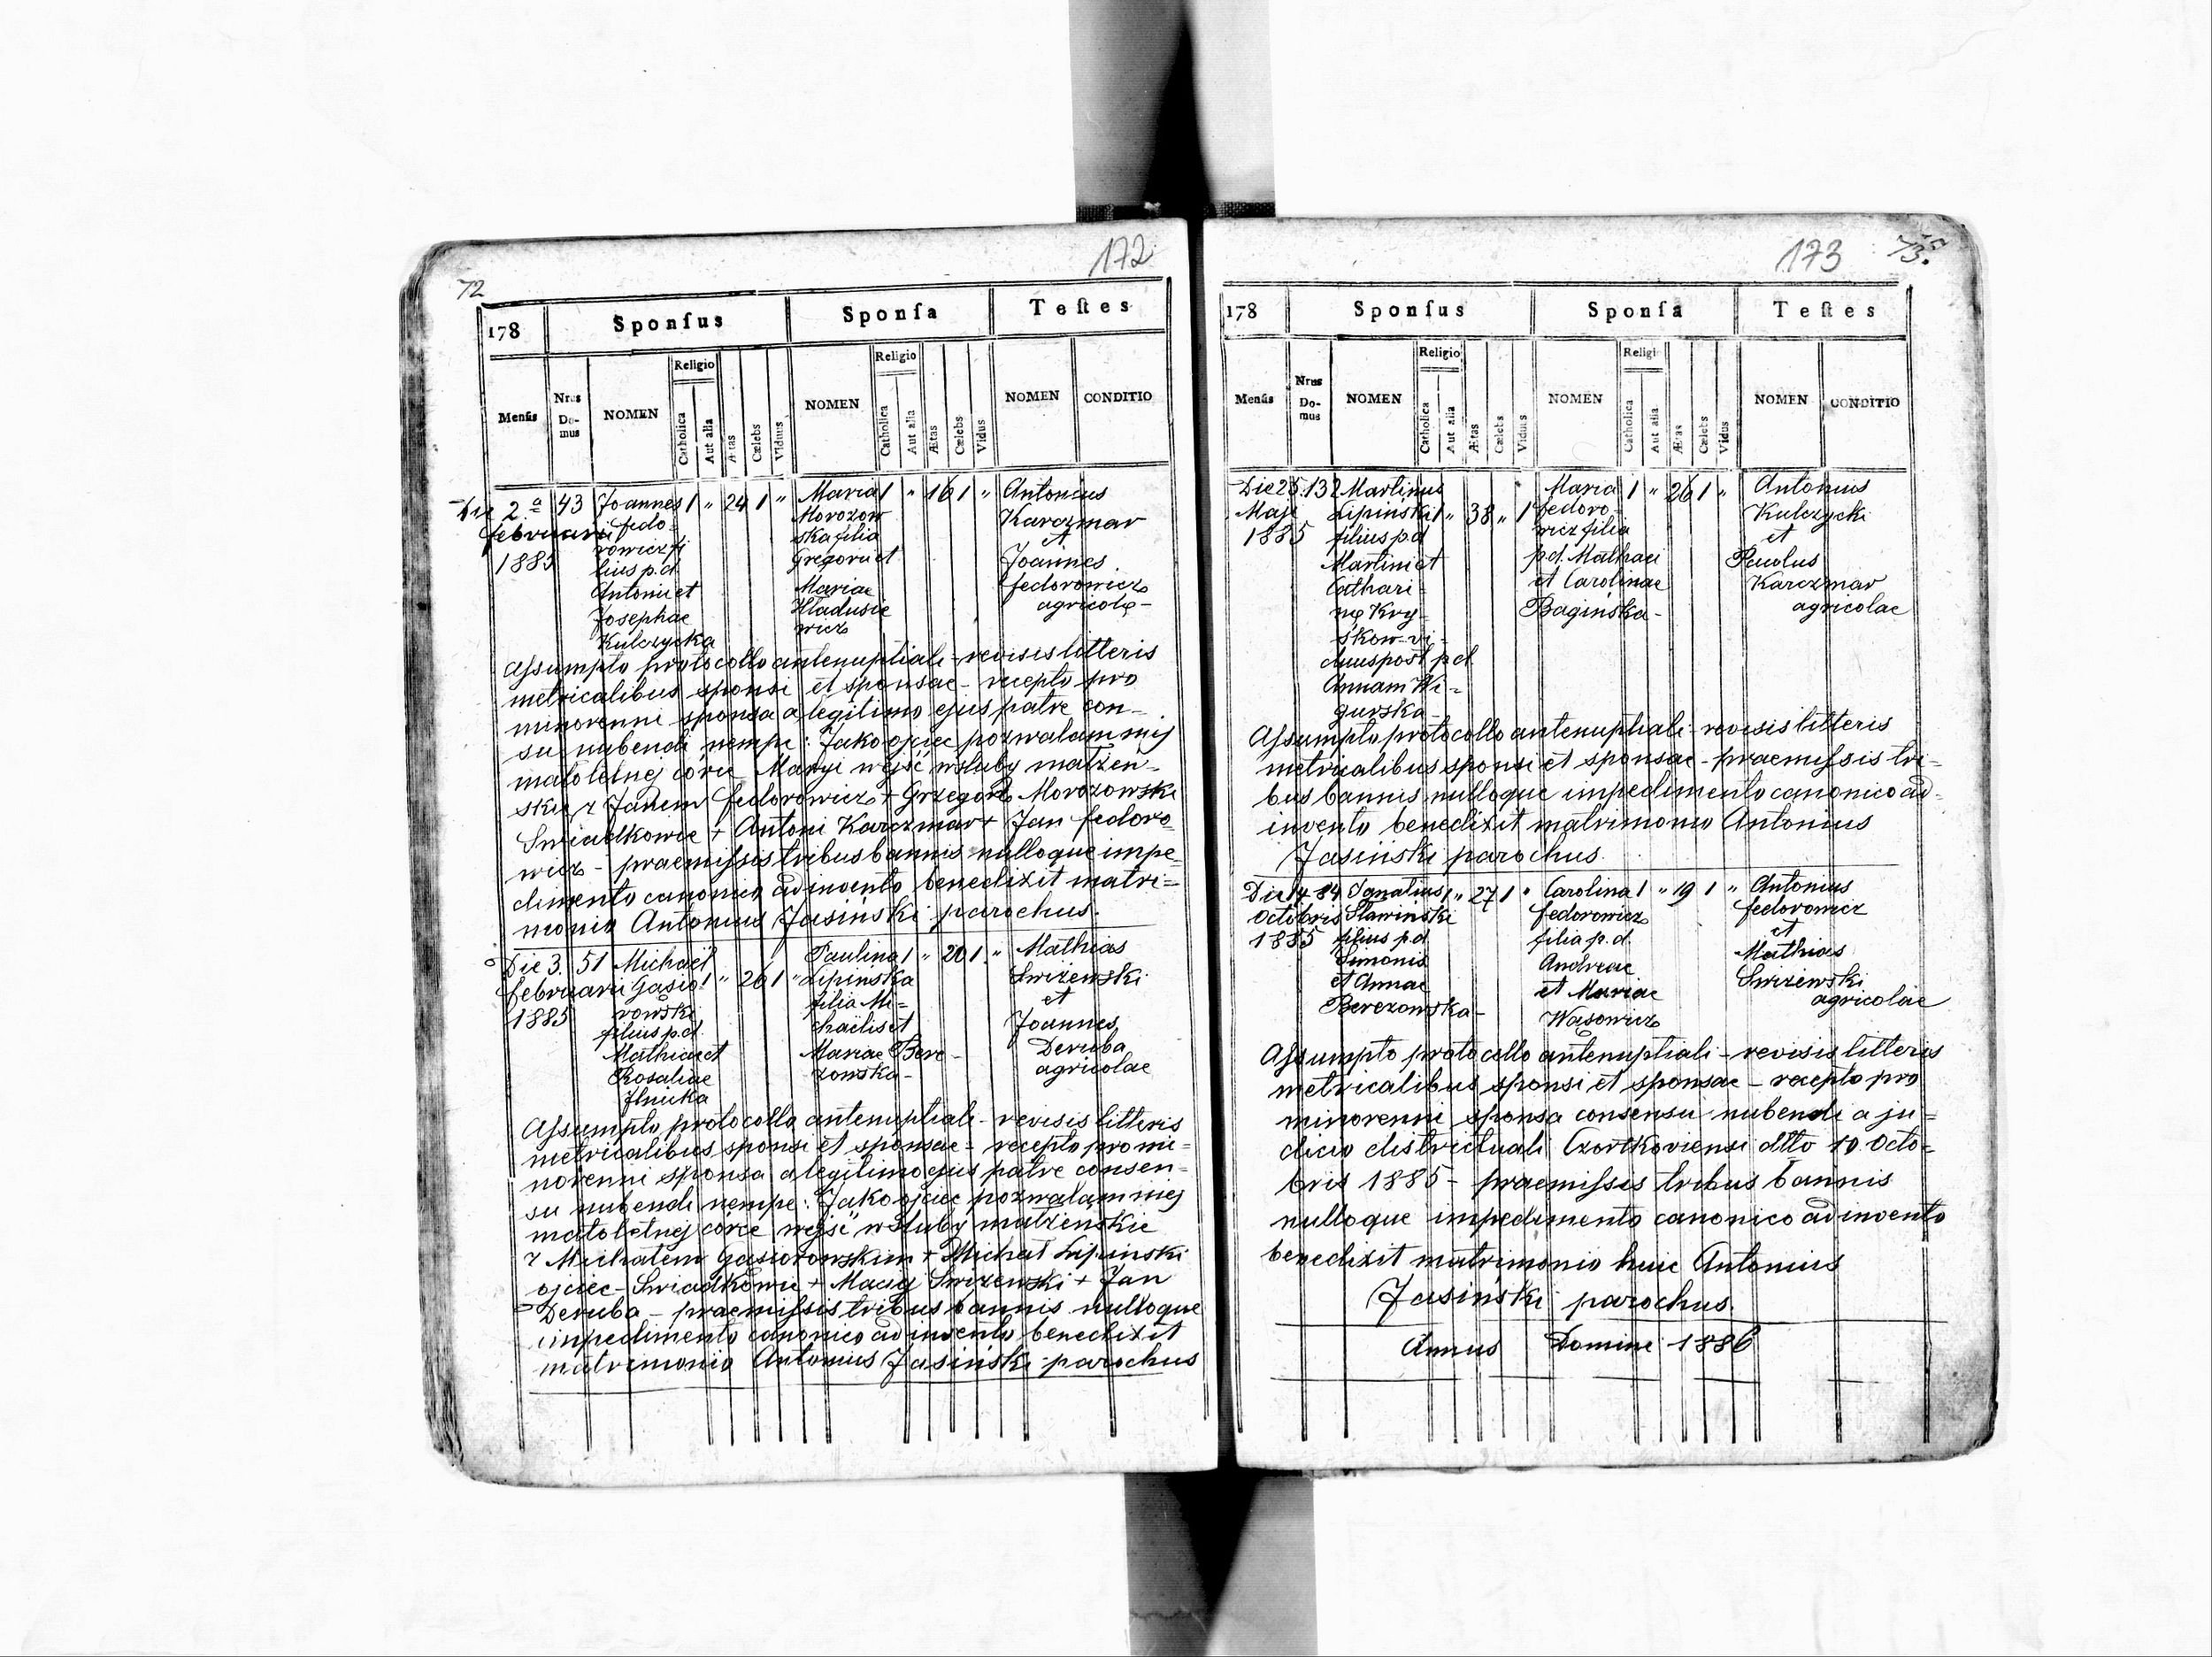 72
172
178 Sponſus Sponſa Teſtes
Religio Religio
Menſis Nrus Domus NOMEN Catholica Aut alia Ætas Cælebs Viduus NOMEN Catholica Aut alia Ætas Cælebs Vidus NOMEN CONDITIO
Die 2ª 43 Joannes 1 " 24 1 " Maria 1 " 16 1 " Antonius
februarii fedo= Morozow Karczmar
1885 rowicz fi ska filia et
lius p.d. Gregorii et Joannes
Antonii et Mariae fedorowicz
Josephae Hladusie agricolę -
Kulczycka wicz
Assumpto protocollo antenuptiali - revisis litteris
metricalibus sponsi et sponsae - recepto pro
minorenni sponsa a legitimo ejus patre con-
su nubendi nempe: Jako ojciec pozwalam mej
małoletnej córce Maryi wejść w śluby małżen-
skie z Janem fedorowicz + Grzegorz Morozowski
Swiadkowie + Antoni Karczmar + Jan fedoro-
wicz - praemissis tribus bannis nulloque impe-
dimento canonico adinvento benedixit matri=
monio Antonius Jasiński parochus.
Die 3. 51 Michaël Paulina 1 " 20 1 " Mathias
februarii Gasio 1 " 26 1 " Lipinska Swizewski
1885 rowski filia Mi= et
filius p.d. chaëlis et Joannes
Mathiae et Mariae Bere- Deruba
Rosaliae zowska - agricolae
Ilnicka
Assumpto protocollo antenuptiali - revisis litteris
metricalibus sponsi et sponsae - recepto pro mi=
norenni sponsa a legitimo ejus patre consen-
su nubendi nempe: Jako ojciec pozwalam mej
małoletnej córce wejść w śluby małżeńskie
z Michałem Gasiorowskim + Michał Lipinski
ojciec - Swiadkowie + Maciej Swizewski + Jan
Deruba - praemissis tribus bannis nulloque
impedimento canonico adinvento benedixit
matrimonio Antonius Jasiński parochus
173 73.
178 Sponſus Sponſa Teſtes
Religio Religi
Menſis Nrus Domus NOMEN Catholica Aut alia Ætas Cælebs Viduus NOMEN Catholica Aut alia Ætas Cælebs Vidus NOMEN CONDITIO
Die 25. 132 Martinus Maria 1 " 26 1 " Antonius
Maji Lipinski 1 " 38 " 1 fedoro- Kulczycki
1885 filius p.d. wicz filia et
Martini et p.d. Mathaei Paulus
Cathari- et Carolinae Karczmar
nę Kry- Baginska - agricolae
skow - vi-
duus post p.d.
Annam Wi=
gurska -
Assumpto protocollo antenuptiali - revisis litteris
metricalibus sponsi et sponsae - praemissis tri-
bus bannis nulloque impedimento canonico ad-
invento benedixit matrimonio Antonius
Jasiński parochus.
Die 14 84 Ignatius 1 " 27 1 " Carolina 1 " 19 1 " Antonius
Octobris Sławinski fedorowicz fedorowicz
1885 filius p.d. filia p.d. et
Simonis Andreae Mathias
et Annae et Mariae Swizewski
Berezowska - Wąsowicz agricolae
Assumpto protocollo antenuptiali - revisis litteris
metricalibus sponsi et sponsae - recepto pro
minorenni sponsa consensu nubendi a ju=
dicio districtuali Czortkoviensi dtto 10 Octo-
bris 1885 - praemissis tribus bannis
nulloque impedimento canonico adinvento
benedixit matrimonio huic Antonius
Jasiński parochus.
Annus Domini 1886